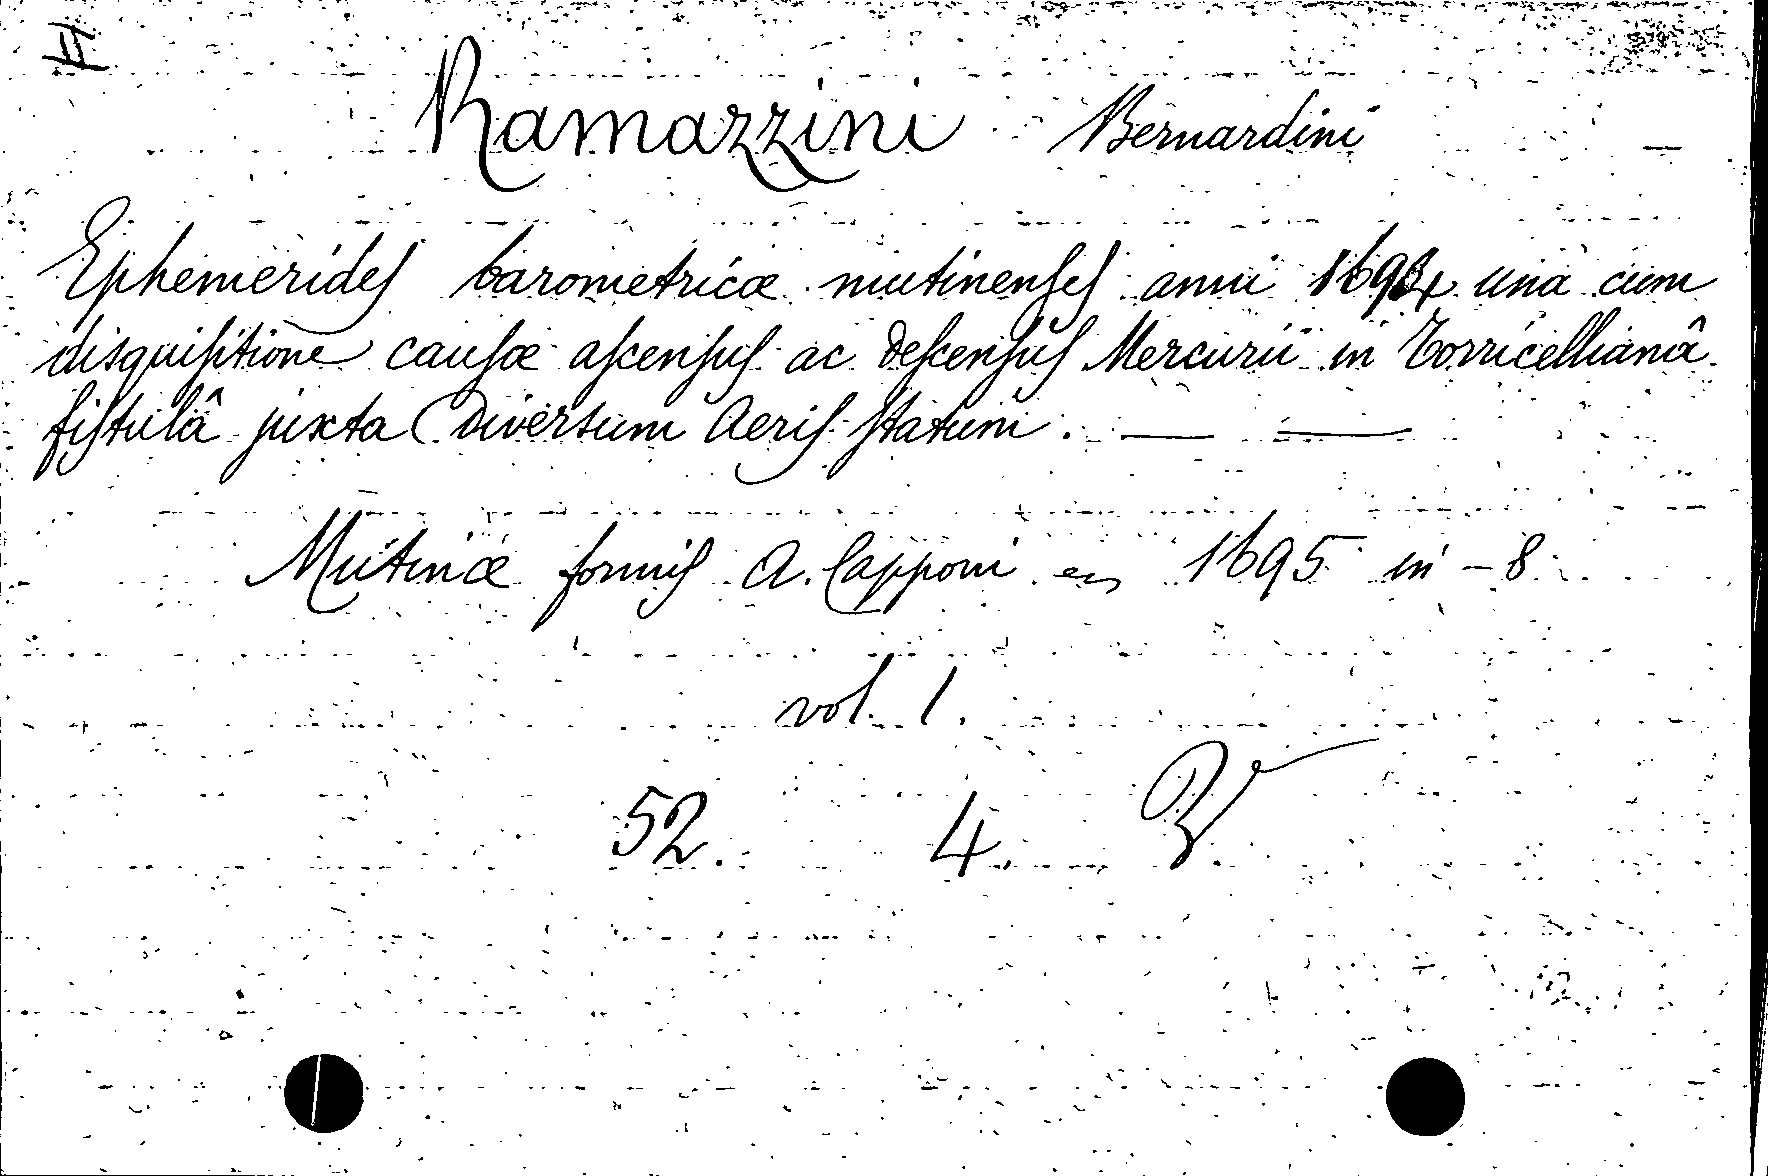 II
Ramazzini Bernardini
Ephemerides barometricæ mutinenses anni 1694 unâ cum
disquisitione causæ ascensus ac descensus Mercurii in Torricellianâ
fistulâ juxta diversum Aeris statum. — —
Mutinæ formis A. Capponi en 1695 in-8.
vol. 1.
52. 4.